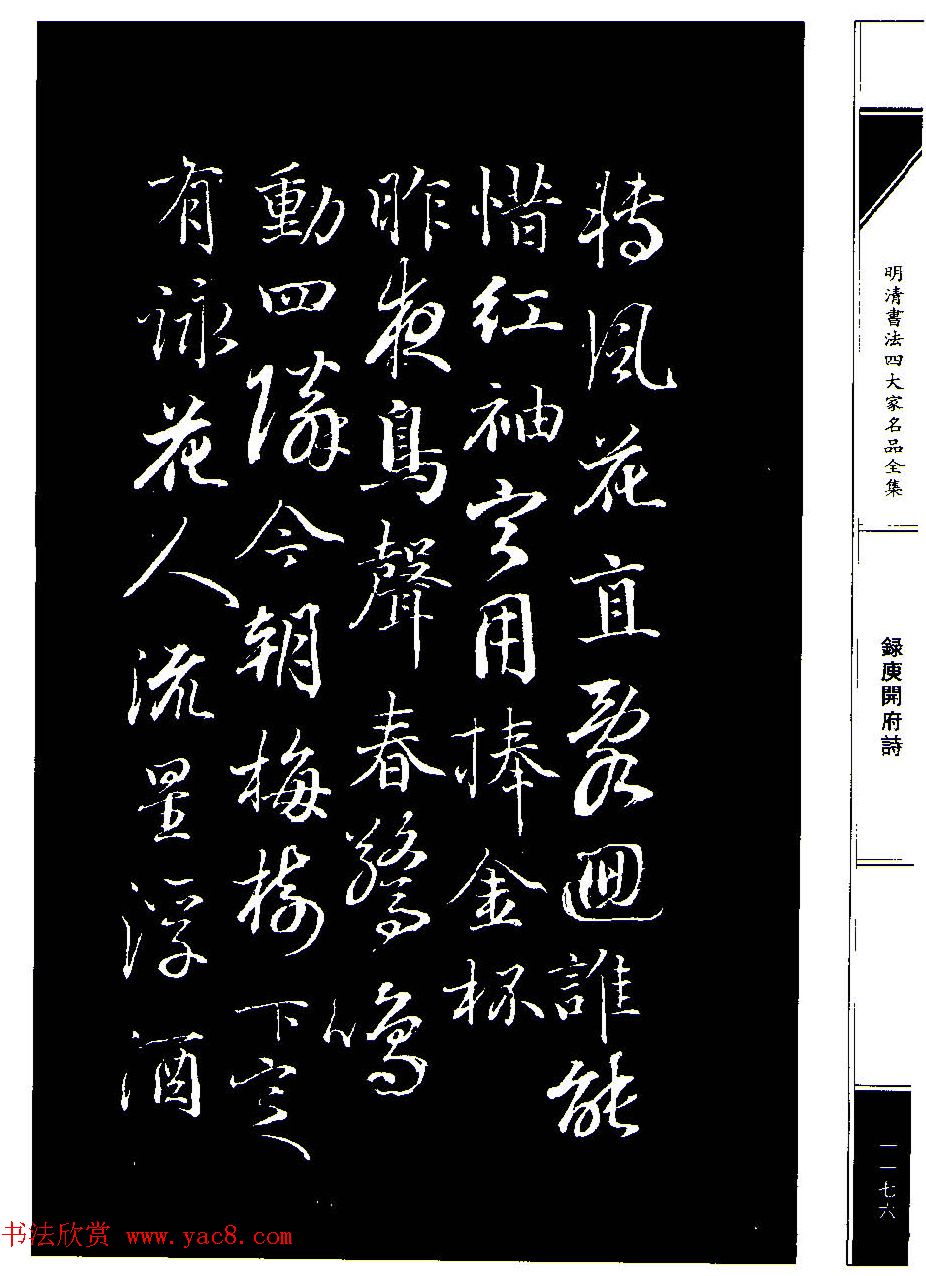 轉風花直亂迴誰能
惜紅袖寧用捧金杯
昨夜鳥聲春驚鳴
動四隣今朝梅樹下定
有詠花人流星浮酒
明清書法四大家名品全集
録庾開府詩
一一七六
书法欣赏 www.yac8.com